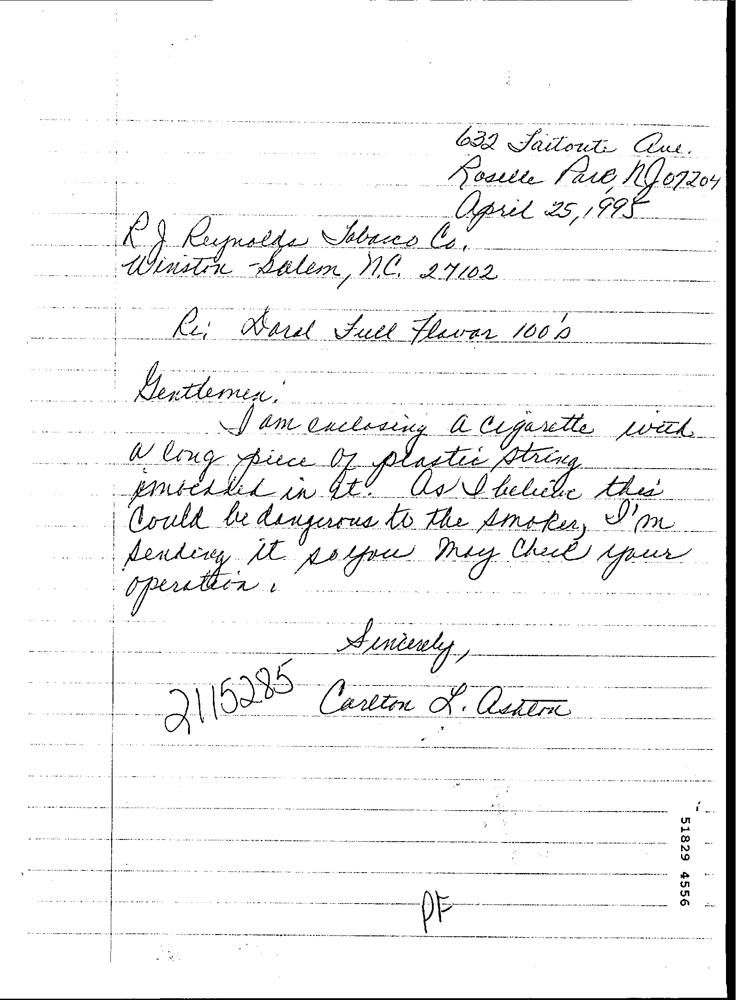 632 Faitoute Ave.
Roselle Park, NJ 07204
April 25, 1995
R J Reynolds Tobacco Co.
Winston-Salem, N.C. 27102
Re: Doral Full Flavor 100's
Gentlemen:
I am enclosing a cigarette with
a long piece of plastic string
imbedded in it. As I believe this
could be dangerous to the smoker, I'm
sending it so you may check your
operation.
Sincerely,
2115285
Carlton L. Ashton
51829 4556
PF